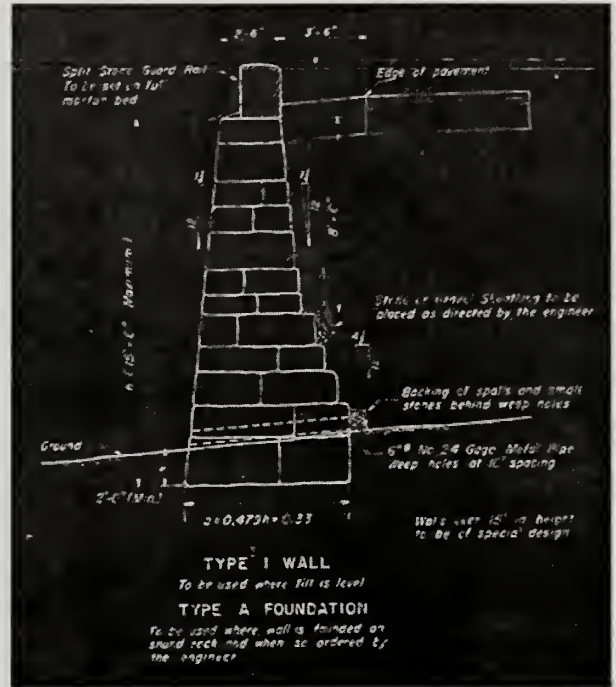 2'-6" 3'-6"
Split Stone Guard Rail
To be set in full
mortar bed
Edge of pavement
Stone or gravel
to be
placed as directed by the engineer
Backing of spalls and small
stones behind weep holes
Ground
6"ø No. 24 Gage Metal Pipe
Weep holes at 10' spacing
2'-0" (Min.)
Walls over 15' in height
to be of special design
TYPE I WALL
To be used where fill is level
TYPE A FOUNDATION
To be used where wall is founded on
sound rock and when so ordered by
the engineer